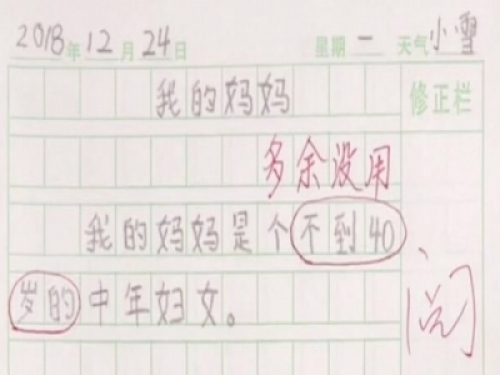 2018年12月24日 星期一 天气小雪
我的妈妈
修正栏
多余没用
我的妈妈是个不到40
岁的中年妇女。
阅